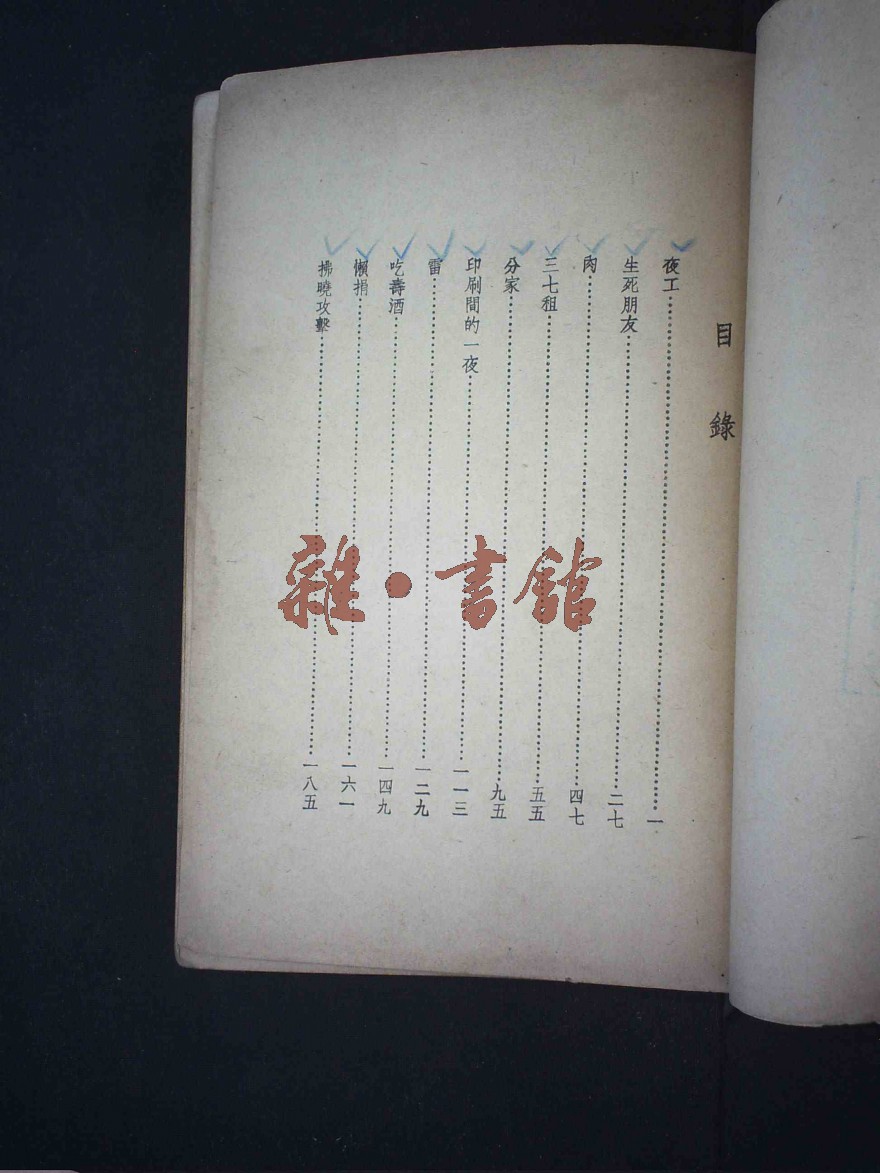 目錄
夜工……一
生死朋友……二七
肉……四七
三七租……五五
分家……九五
印刷間的一夜……一一三
雷……一二九
吃壽酒……一四九
懶捐……一六一
拂曉攻擊……一八五
雜·書館